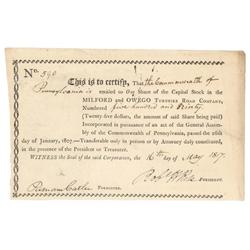 No. 590
This is to certify, That the Commonwealth of
Pennsylvania is entitled to One Share of the Capital Stock in the
MILFORD and OWEGO TURNPIKE ROAD COMPANY,
Numbered five hundred and Ninety
(Twenty five dollars, the amount of said Share being paid)
Incorporated in pursuance of an act of the General Assembly
of the Commonwealth of Pennsylvania, passed the 26th
day of January, 1807.—Transferable only in person or by Attorney duly constituted,
in the presence of the President or Treasurer.
WITNESS the Seal of the said Corporation, the 16th day of May 1817.
PRESIDENT.
Putnam Catlin TREASURER.